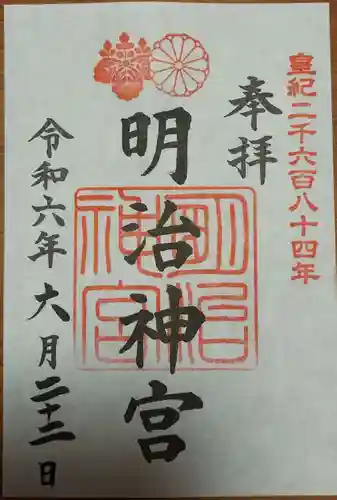 皇紀二千六百八十四年
奉拝
明治神宮
明治神宮
令和六年 六月二十二日